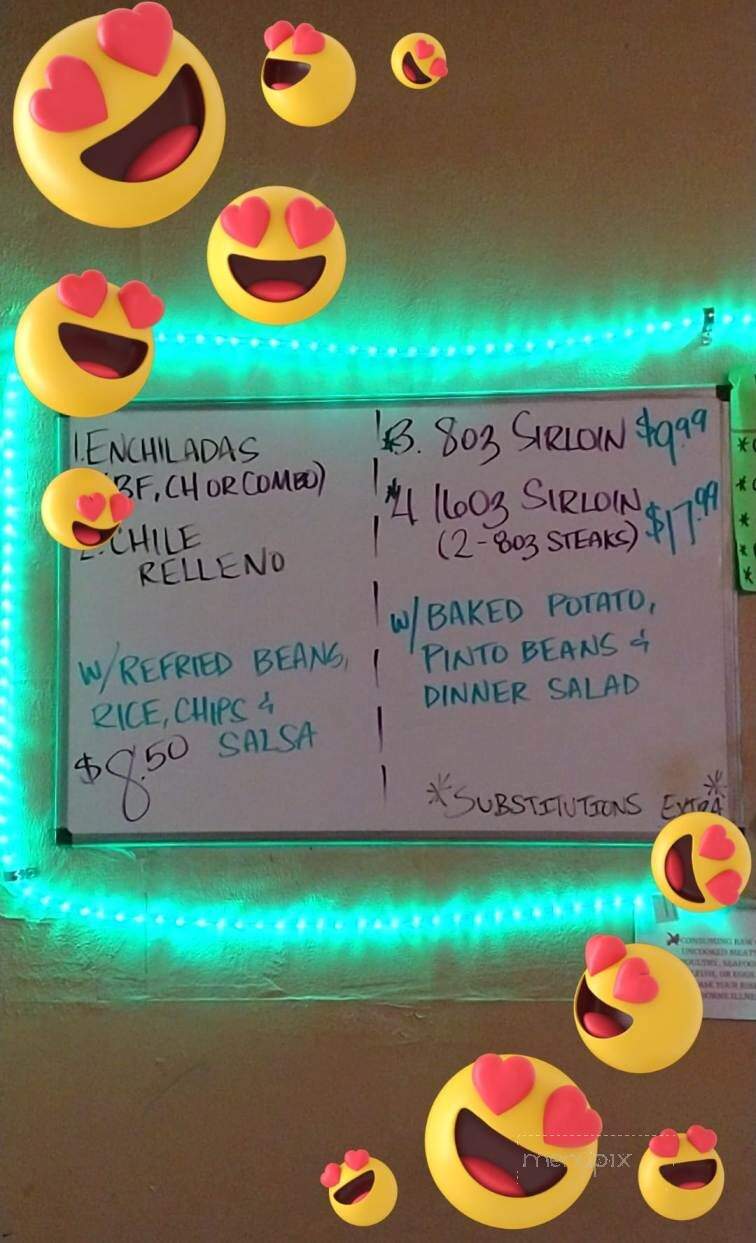 1. ENCHILADAS
(BF, CH OR COMBO)
2. CHILE
RELLENO
W/REFRIED BEANS,
RICE, CHIPS &
SALSA
$8.50
*3. 8oz SIRLOIN $9.99
*4 16oz SIRLOIN
(2-8oz STEAKS) $17.99
W/BAKED POTATO,
PINTO BEANS &
DINNER SALAD
*SUBSTITUTIONS EXTRA*
*CONSUMING RAW
UNCOOKED MEATS
POULTRY, SEAFOOD
OR EGGS
YOUR
menupix